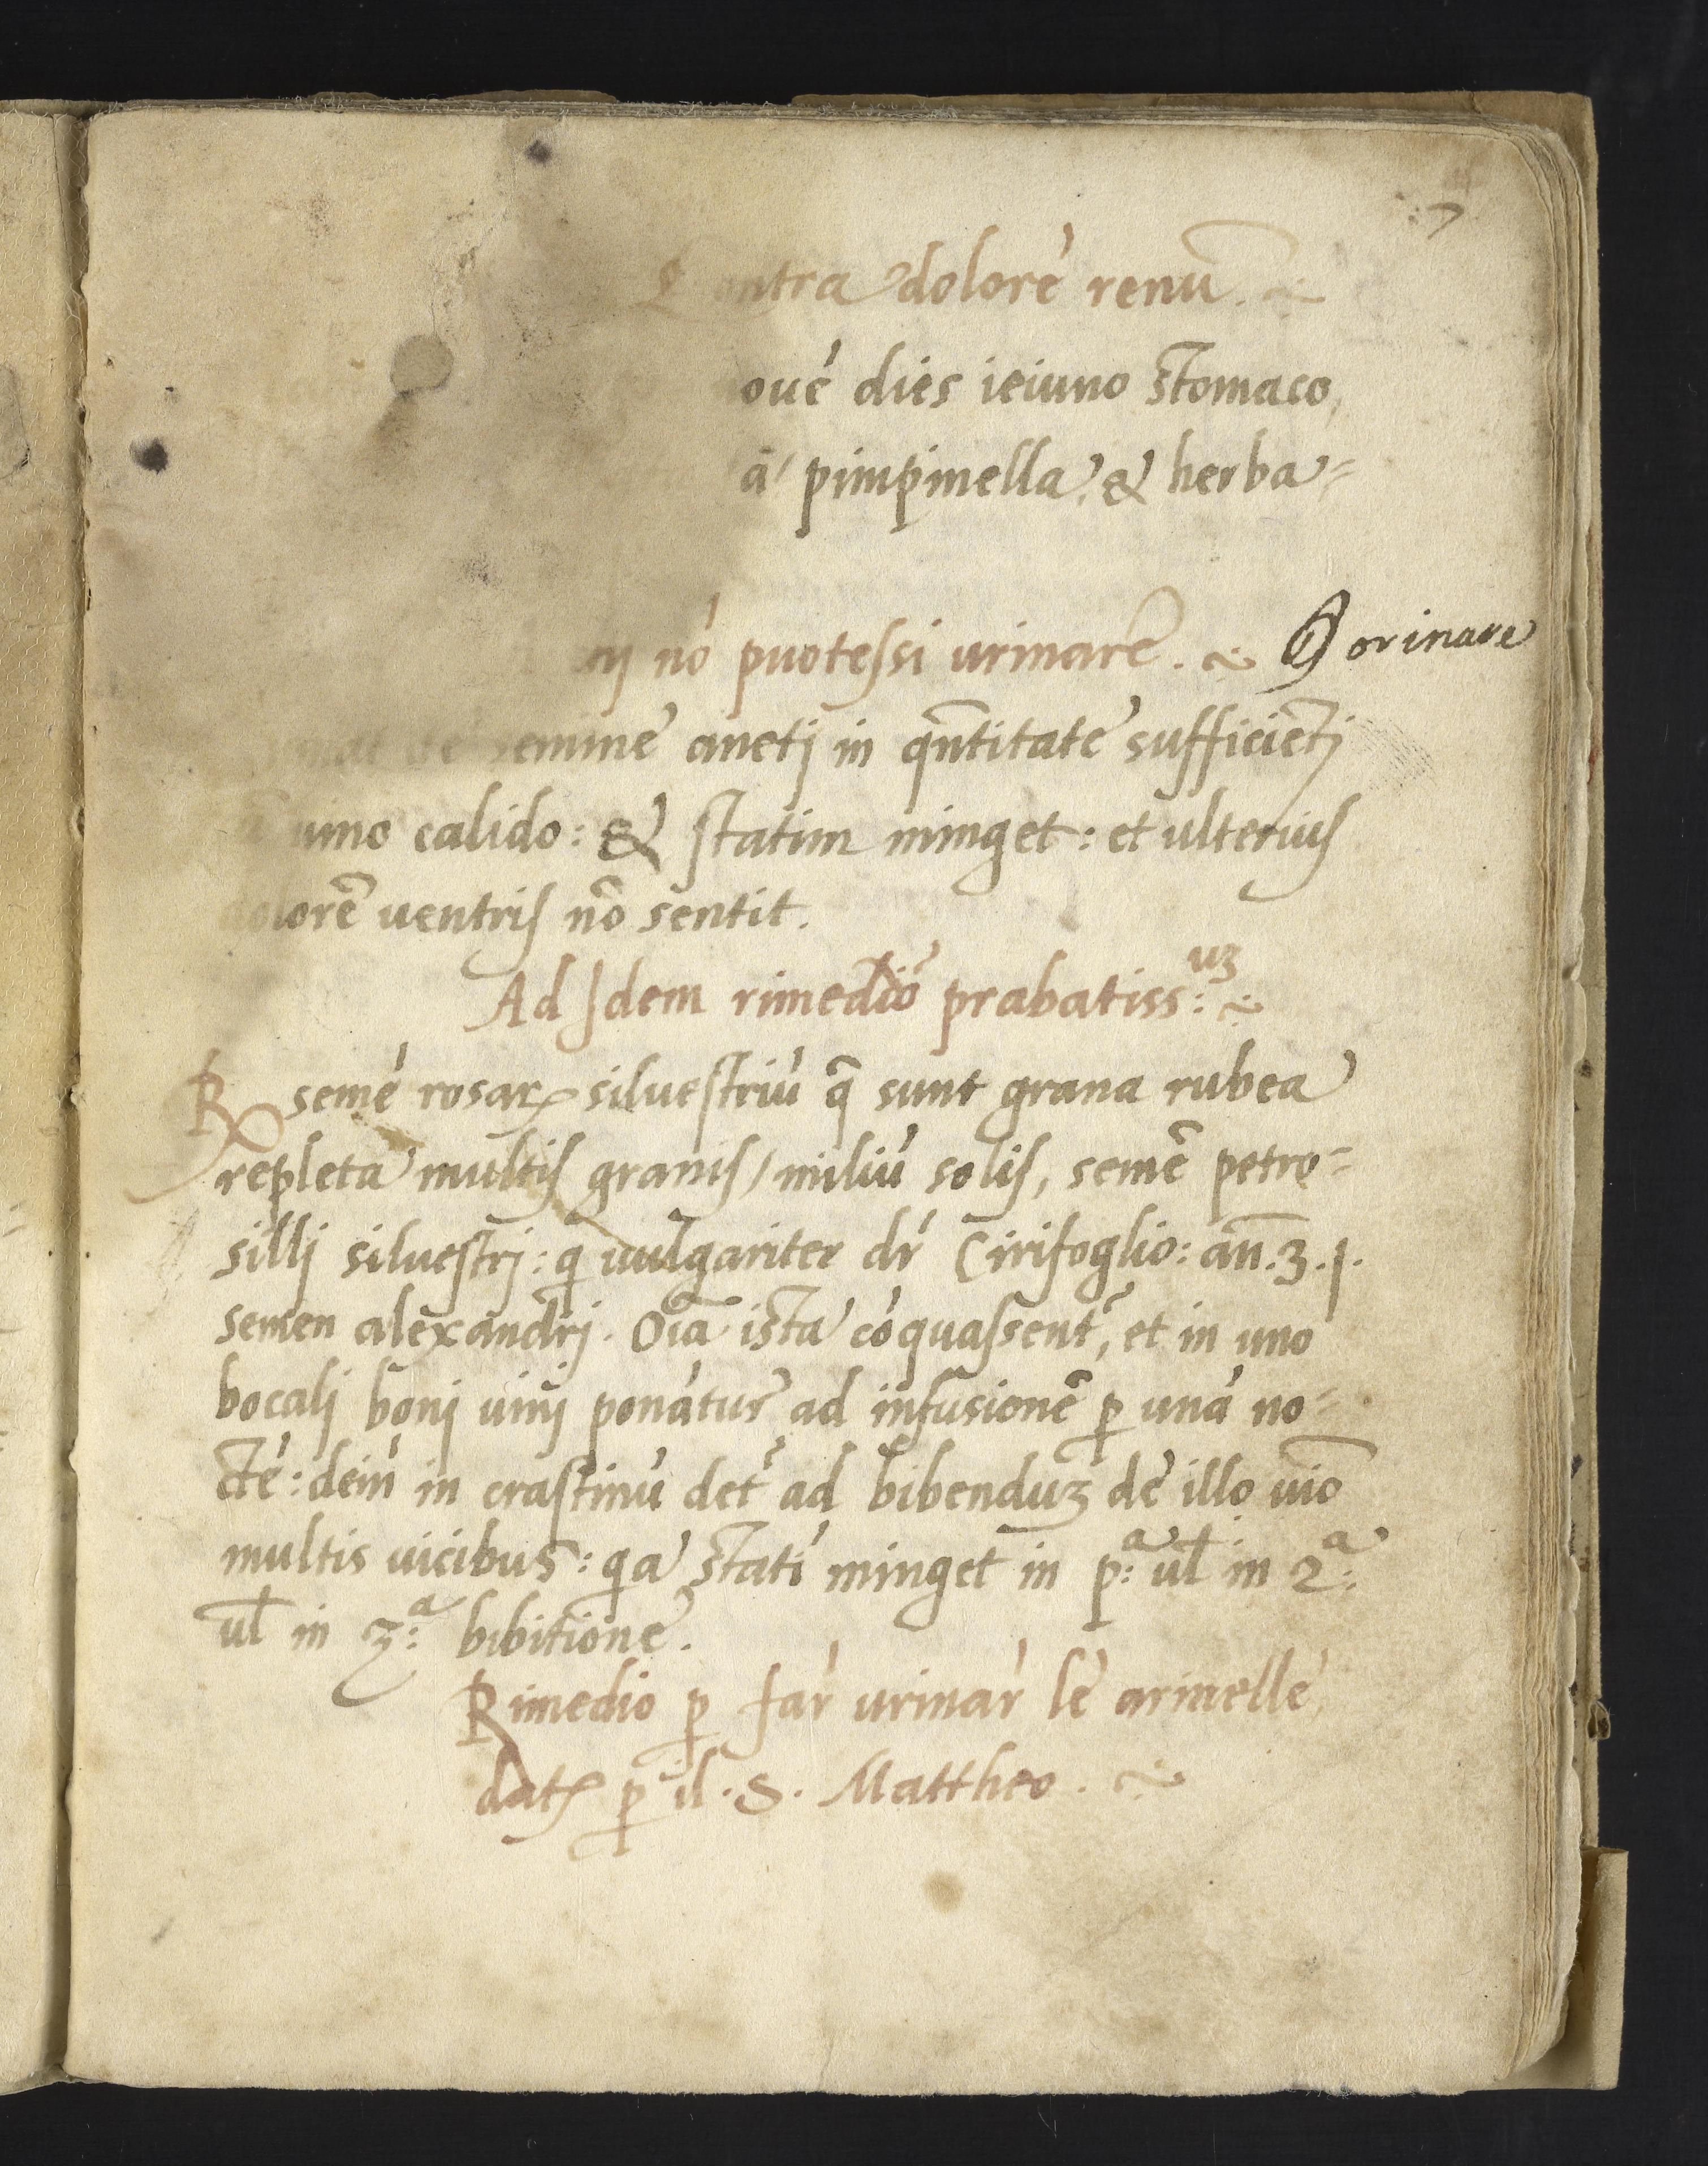 7
Contra dolorē renū.
ouē dies ieiuno stomaco,
ā pimpinella, & herba=
nō puotessi urinare. orinare
semine anetj in qn̄titate sufficiētj
uino calido: & statim minget: et ulterius
dolorē uentris nō sentit.
Ad Idem rimediō prabatiss:uȝ
℞ semē rosaꝝ siluestriū q̄ sunt grana rubea
repleta multis granis, miliū solis, semē petro=
sillj siluestrj: q̄ uulgariter dr̄ Cirifoglio: an̄.ʒ.j.
semen alexandrj. Oīa ista cōquassent̄, et in uno
bocalj bonj uinj ponātur ad infusionē ꝑ unā no=
ctē: dein̄ in crastinū det̄ ad bibenduȝ de illo uīo
multis uicibus: qa statī minget in p:ª ul̄ in 2:ª
ul̄ in 3:ª bibitione.
Rimedio ꝑ far urinar le arinelle
ꝑ il .S. Mattheo.